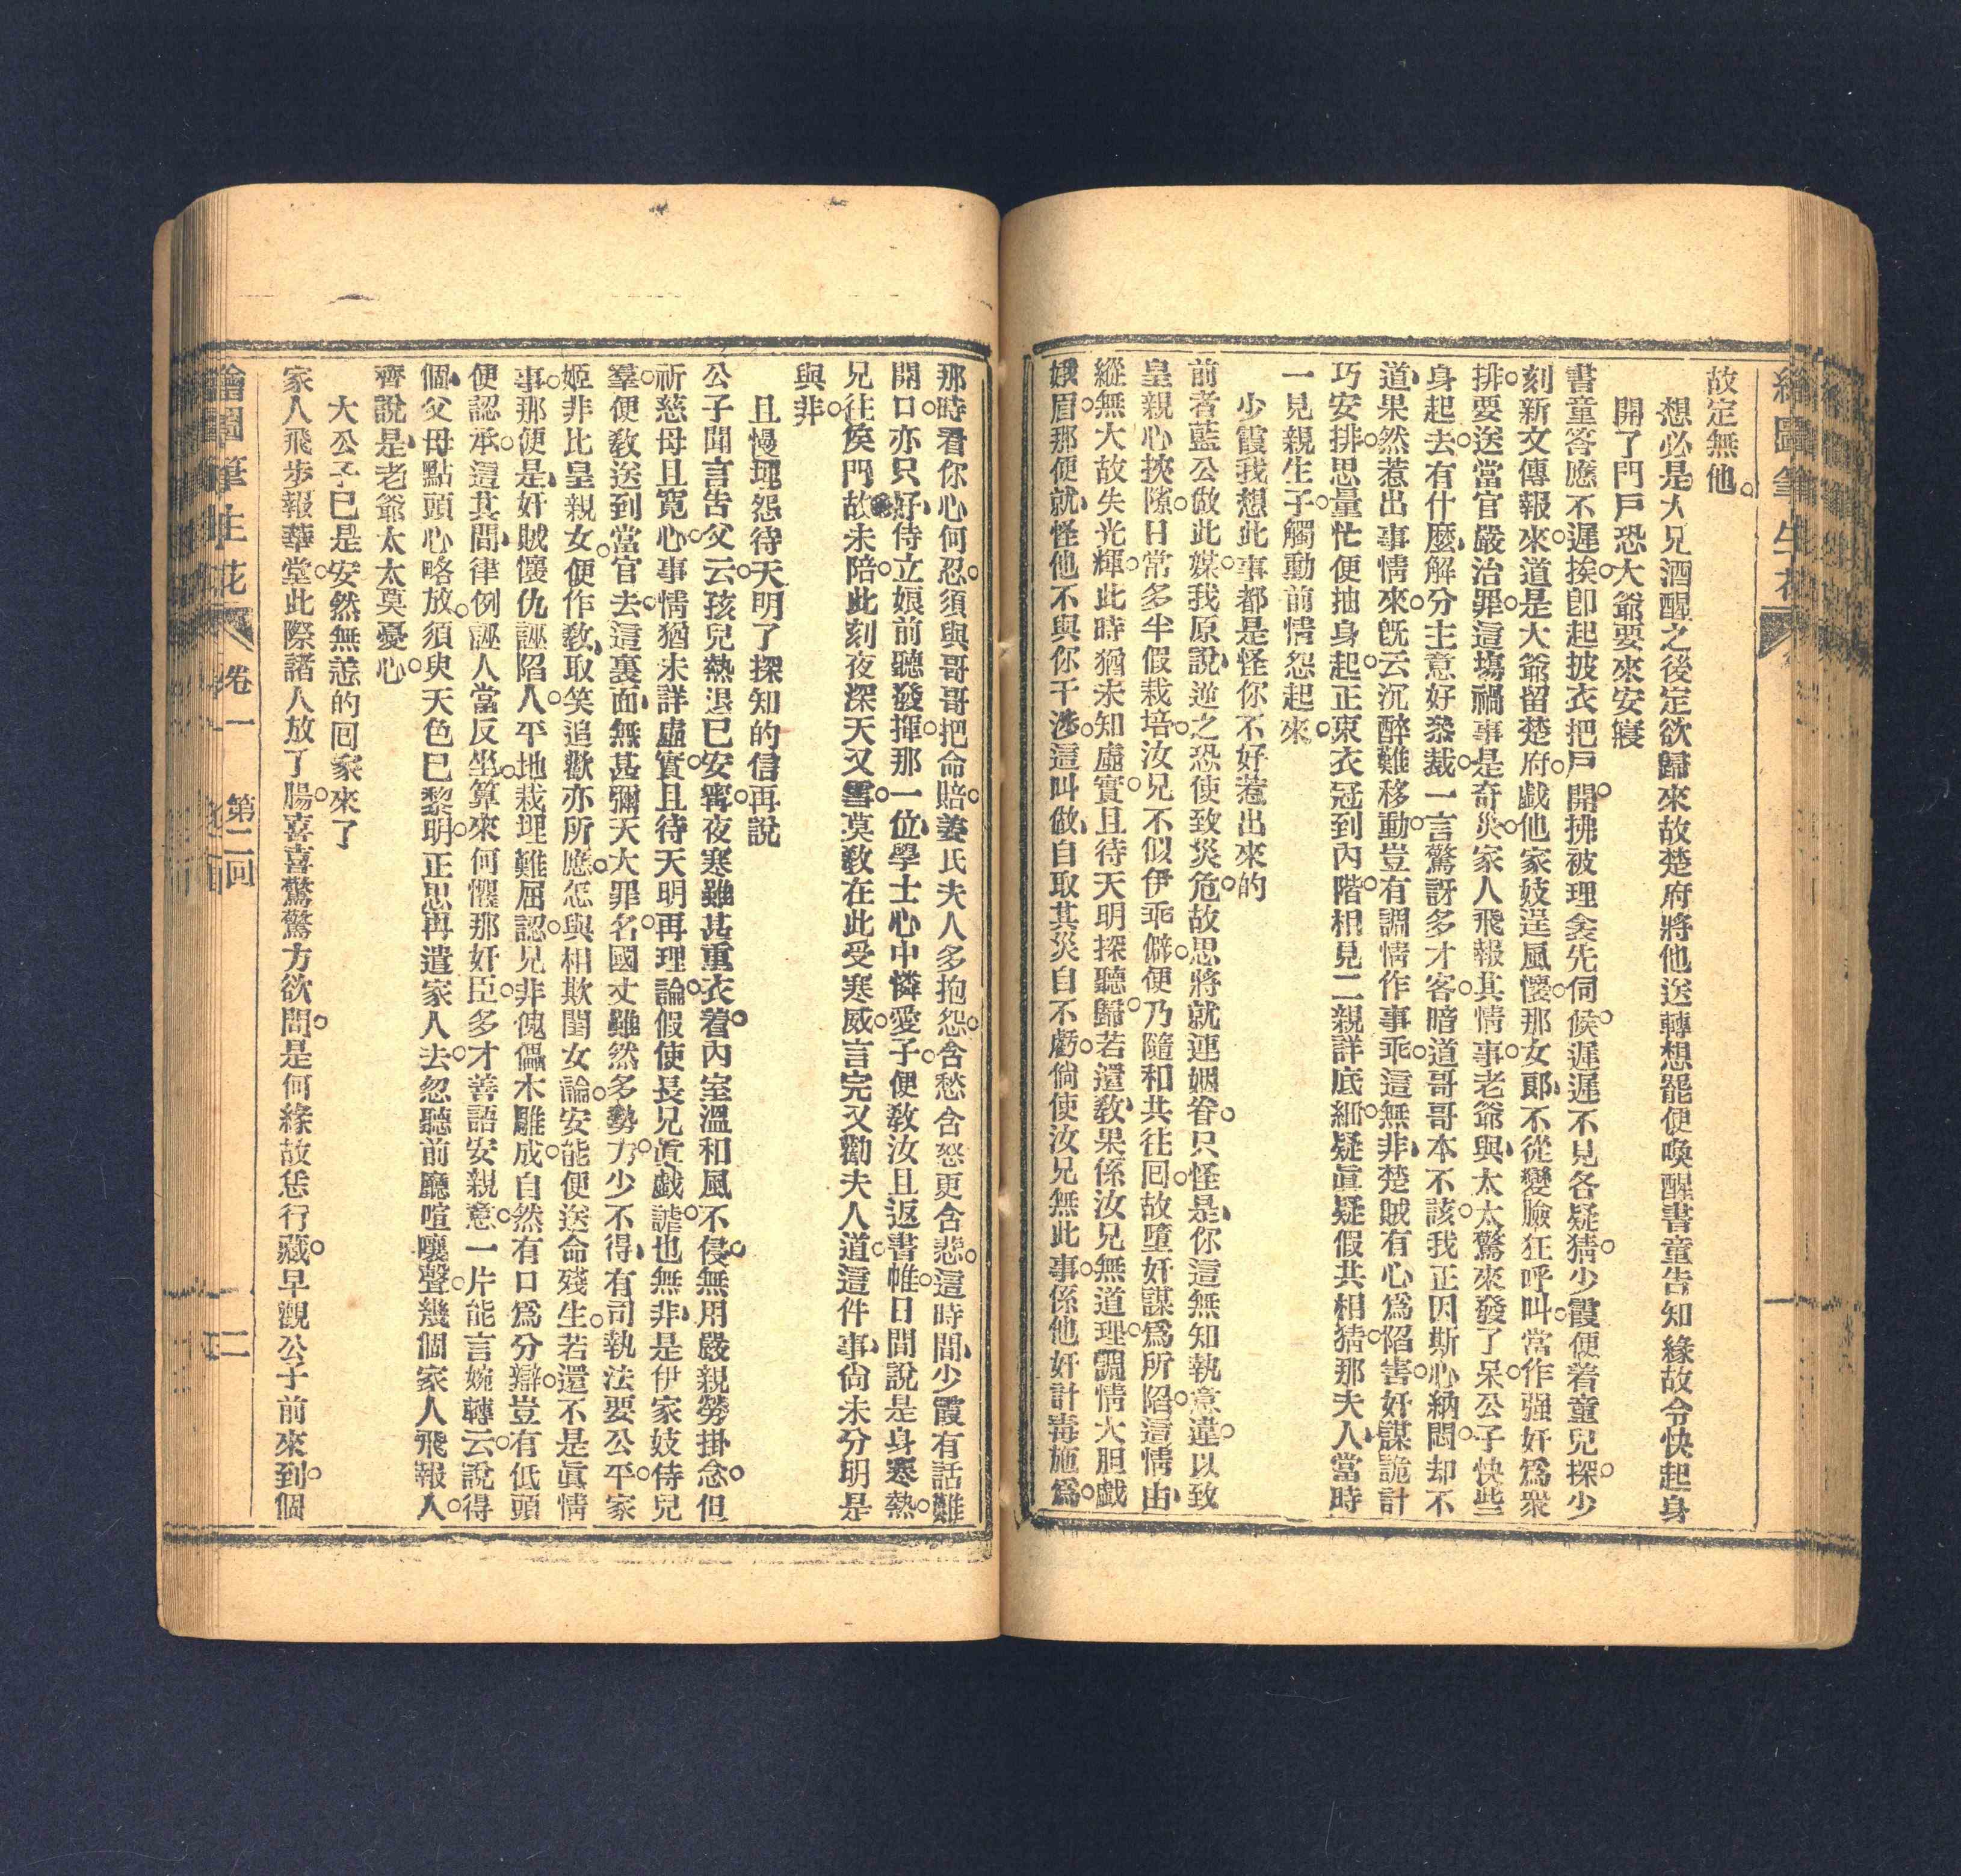 繪圖筆生花
故定無他。
想必是大兄酒醒之後定欲歸來故楚府將他送轉想罷便喚醒書童告知緣故令快起身
開了門戶恐大爺要來安寢
書童答應不遲挨。卽起披衣把戶開。拂被理衾先伺候。遲遲不見各疑猜。少霞便着童兒探。少
刻新文傳報來。道是大爺留楚府。戲他家妓逞風懷。那女郎、不從變臉狂呼叫。當作强奸爲衆
排。要送當官嚴治罪。這塲禍事是奇災。家人飛報其情事。老爺與、太太驚來發了呆。公子快些
身起去。有什麼、解分主意好叅裁。一言驚訝多才客。暗道哥哥本不該。我正因斯心納悶。却不
道、果然惹出事情來。旣云沉醉難移動。豈有調情作事乖。這無非、楚賊有心爲陷害。奸謀詭計
巧安排。思量忙便抽身起。正束衣冠到內階。相見二親詳底細。疑眞疑假共相猜。那夫人、當時
一見親生子。觸動前情怨起來。
少霞我想此事都是怪你不好惹出來的
前者藍公做此媒。我原說、逆之恐使致災危。故思將就連姻眷。只怪是、你這無知執意違。以致
皇親心挾隙。日常多半假栽培。汝兄不似伊乖僻。便乃隨和共往回。故墮奸謀爲所陷。這情由、
縱無大故失光輝。此時猶未知虛實。且待天明探聽歸。若還教、果係汝兄無道理。調情大胆戲
娥眉。那便就、怪他不與你干涉。這叫做、自取其災自不虧。倘使汝兄無此事。係他奸計毒施爲。
那時看你心何忍。須與哥哥把命賠。姜氏夫人多抱怨。含愁含怒更含悲。這時間、少霞有話難
開口。亦只好、侍立娘前聽發揮。那一位、學士心中憐愛子。便教汝且返書帷。日間說是身寒熱。
兄往侯門故未陪。此刻夜深天又雪。莫教在此受寒威。言完又勸夫人道。這件事、尙未分明是
與非。
且慢埋怨待天明了探知的信再說
公子聞言告父云。孩兒熱退已安寧。夜寒雖甚重衣着。內室溫和風不侵。無用嚴親勞掛念。但
祈慈母且寬心。事情猶未詳虛實。且待天明再理論。假使長兄眞戲謔。也無非、是伊家妓侍兒
羣。便教送到當官去。這裏面、無甚彌天大罪名。國丈雖然多勢力。少不得、有司執法要公平。家
姬非比皇親女。便作教、取笑追歡亦所應。怎與相欺閨女論。安能便送命殘生。若還不是眞情
事。那便是、奸賊懷仇誣陷人。平地栽埋難屈認。兄非傀儡木雕成。自然有口爲分辯。豈有低頭
便認承。這其間、律例誣人當反坐。算來何懼那奸臣。多才善語安親意。一片能言婉轉云。說得
個、父母點頭心略放。須臾天色已黎明。正思再遣家人去。忽聽前廳喧嚷聲。幾個家人飛報人。
齊說是、老爺太太莫憂心。
大公子已是安然無恙的回家來了
家人飛步報華堂。此際諸人放了腸。喜喜驚驚方欲問。是何緣故恁行藏。早觀公子前來到。個
繪圖筆生花
卷一
第二回
二